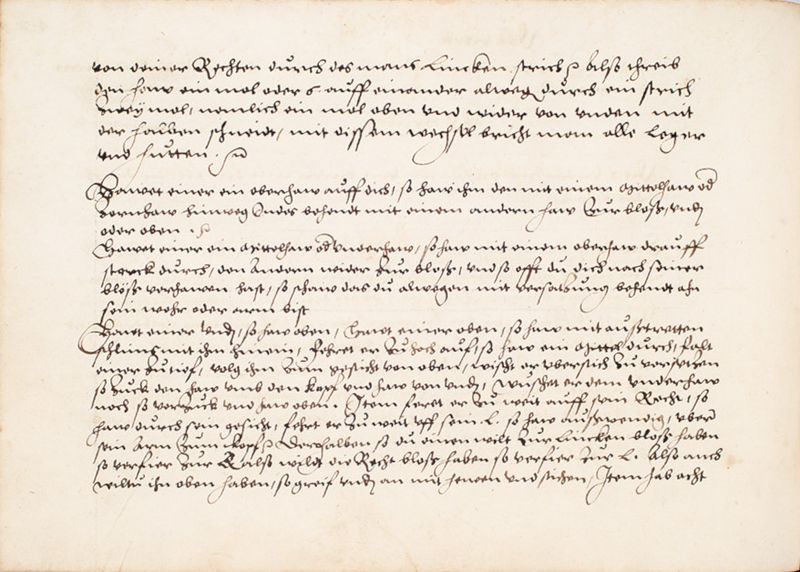 von deiner Rechten durch des mans Lincken strich / Also threib
den haw ein mol oder 6 auff einander alweg durch ein strich
zwey mol, namlich ein mol oben vnd wider von vnden mit
der halben schneidt, mit dissem wechsel bricht man alle leger
vnd hutten.
Hawet einer ein oberhaw auff dich, so haw ihm den mit einem Mittelhaw od
Zornhaw hinweg Indes behendt mit einem andern haw Zur blosz, vnd
oder oben.
Hawet einer ein Mittelhaw od vnderhaw, so haw mit einem oberhaw drauff
starck durch, den Andern wider Zur blosz, vnd so offt du dich nach seiner
blösz verhawen hast, so schaw das du alwegen mit versatzung behendt ahn
sein wehr oder arm bist
Hawt einer vnd, so haw oben, Hawt einer oben, so haw mit ausztretten
schlims mit ihm hinein, fehret er Zu hoch auf, so haw ein Mittel durch, falt
einer Zu tief, volg ihm Zum gesicht von oben, wischt er vbersich Zu versetzen
so Zuck den haw vmb den kopf vnd haw von vnd, wuschet er dem vnderhaw
noch so verzuck vnd haw oben. Item feret er Zu weit auff sein Recht, so
haw durch sein gesicht, fehrt er Zu weit vff sein L. so haw auszwendig, vber
sein Arm Zum kopf Derhalben so du einen wilt Zur Lincken blosz haben
so verfier Zur R also wildt die Recht blosz haben so verfier Zur L. Also auch
wiltu ihn oben haben, so greif vnd an mit hewen vnd stichen, Item hab acht